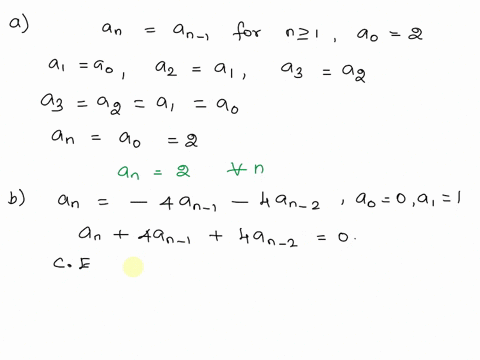 a) aₙ = aₙ₋₁ for n ≥ 1, a₀ = 2
a₁ = a₀, a₂ = a₁, a₃ = a₂
a₃ = a₂ = a₁ = a₀
aₙ = a₀ = 2
aₙ = 2 ∀ n
b) aₙ = - 4aₙ₋₁ - 4aₙ₋₂, a₀ = 0, a₁ = 1
aₙ + 4aₙ₋₁ + 4aₙ₋₂ = 0.
C.E